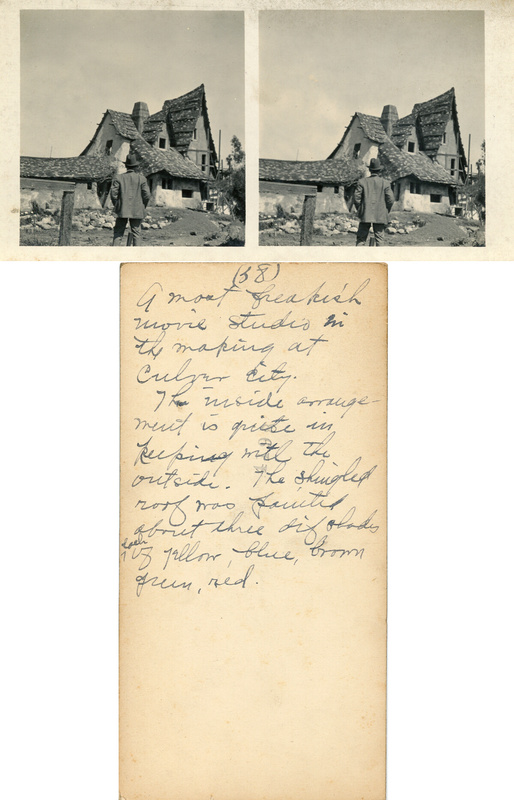 (58)
A most freakish
movie studio in
the making at
Culver City.
The inside arrange-
ment is quite in
keeping with the
outside. The shingled
roof was painted
about three dif shades
each
of yellow, blue, brown
green, red.